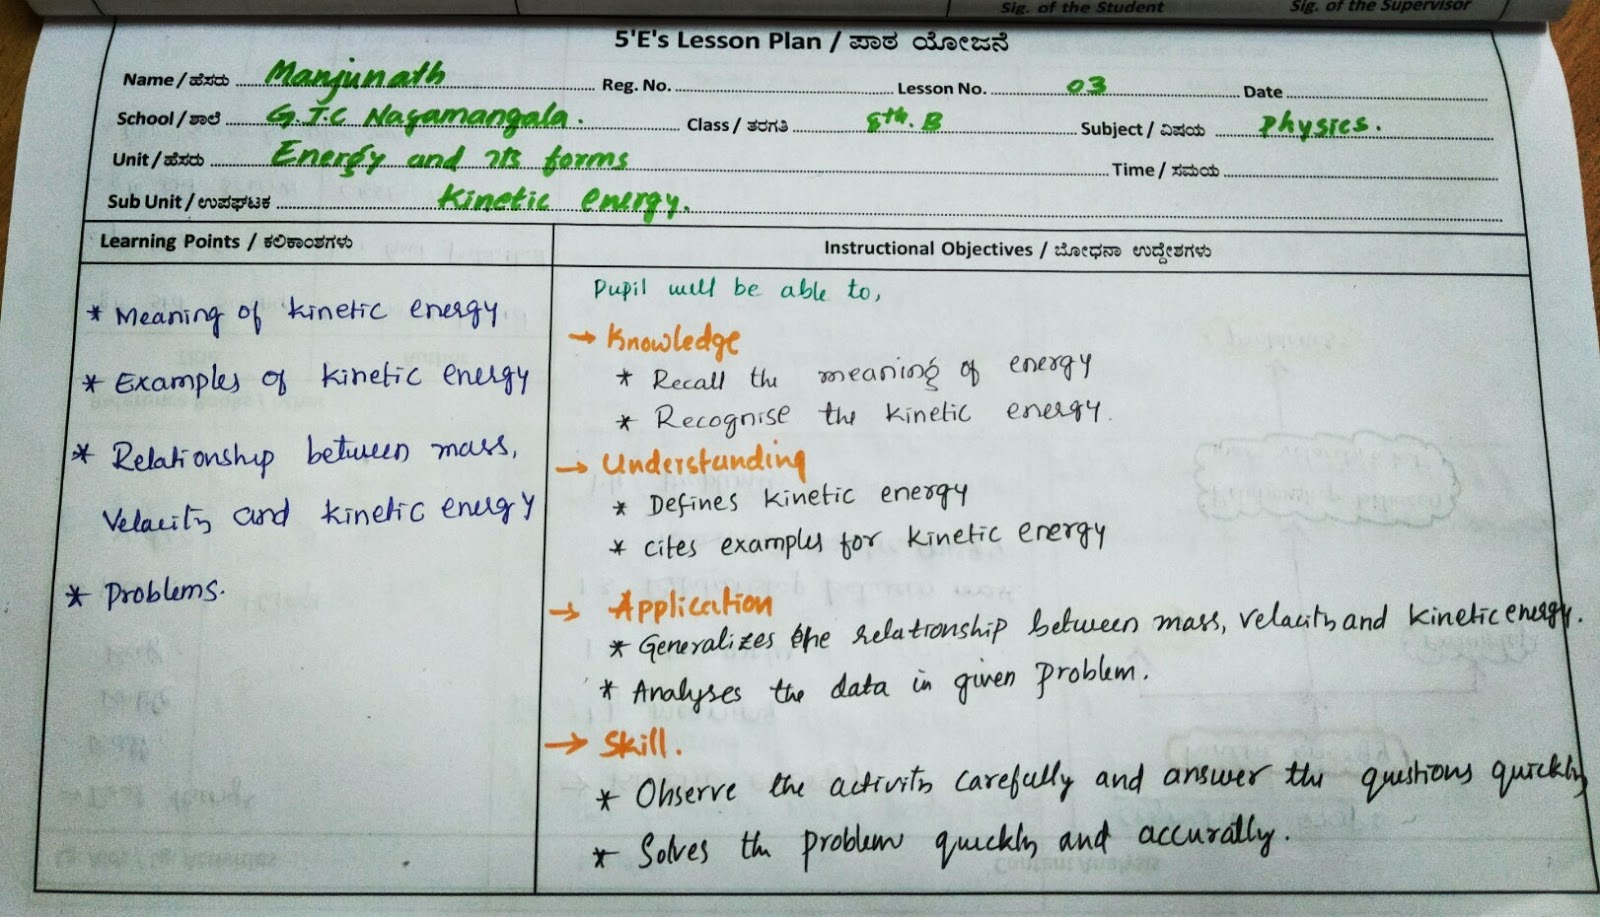 Sig. of the Student Sig. of the Supervisor
5'E's Lesson Plan / ಪಾಠ ಯೋಜನೆ
Name / ಹೆಸರು Manjunath Reg. No. Lesson No. 03 Date
School / ಶಾಲೆ G.J.C Nagamangala. Class / ತರಗತಿ 8th. B Subject / ವಿಷಯ Physics.
Unit / ಹೆಸರು Energy and its forms Time / ಸಮಯ
Sub Unit / ಉಪಘಟಕ Kinetic energy.
Learning Points / ಕಲಿಕಾಂಶಗಳು
* Meaning of kinetic energy
* Examples of kinetic energy
* Relationship between mass,
Velacity and kinetic energy
* Problems.
Instructional Objectives / ಬೋಧನಾ ಉದ್ದೇಶಗಳು
Pupil will be able to,
→ Knowledge
* Recall the meaning of energy
* Recognise the kinetic energy.
→ Understanding
* Defines kinetic energy
* cites examples for kinetic energy
→ Application
* Generalizes the relationship between mass, velacity and kinetic energy.
* Analyses the data in given problem.
→ Skill.
* Observe the activity carefully and answer the questions quickly
* Solves the problem quickly and accurally.